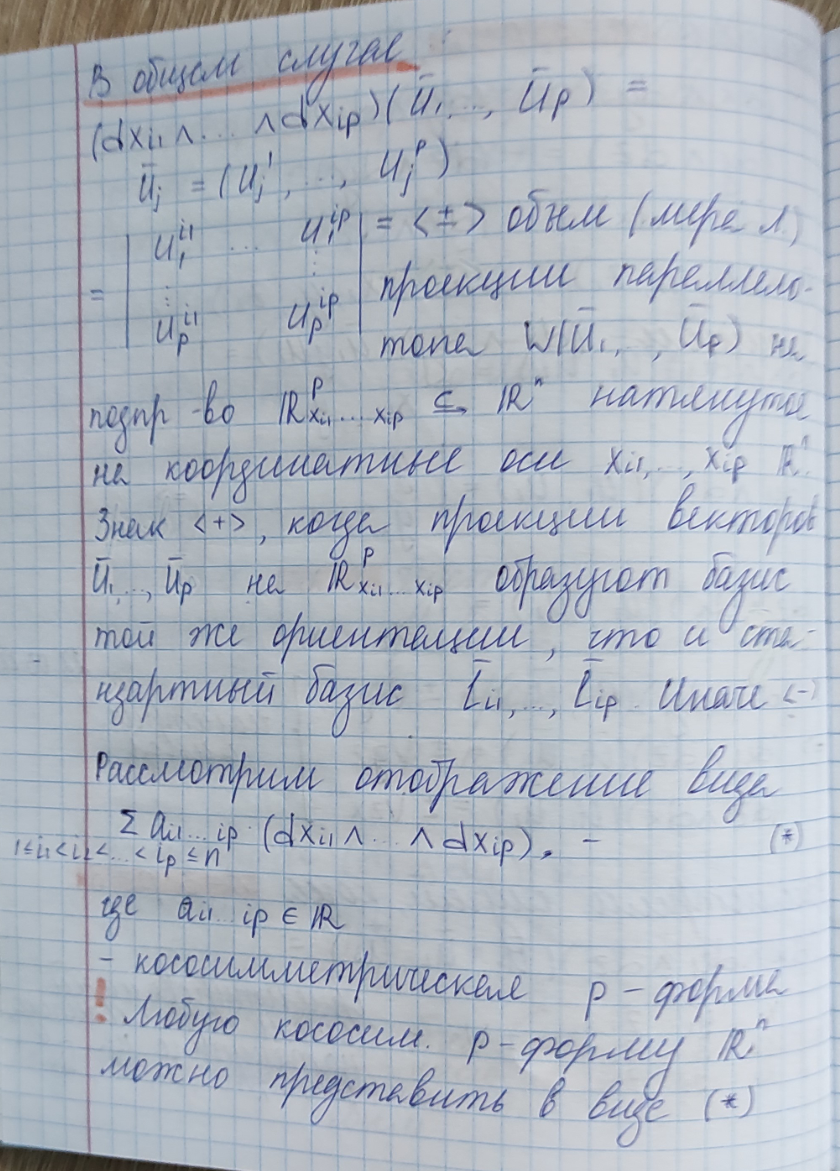 В общем случае
(dxi1 ∧ ... ∧ dxip)(ū1, ..., ūp) =
ūj = (uj¹, ..., ujᵖ)
= | u1^i1 ... u1^ip | = <±> объем (мера Л.)
⋮ ⋮ проекции параллело-
| up^i1 up^ip | топа W(ū1, ..., ūp) на
подпр-во ℝ^p xi1 ... xip ⊆ ℝⁿ натянутое
на координатные оси xi1, ..., xip ℝⁿ.
Знак <+>, когда проекции векторов
ū1, ..., ūp на ℝ^p xi1 ... xip образуют базис
той же ориентации, что и ста-
ндартный базис l̄i1, ..., l̄ip. Иначе <->
Рассмотрим отображение вида
Σ ai1 ... ip (dxi1 ∧ ... ∧ dxip), - (*)
1≤i1<i2<...<ip≤n
где ai1 ... ip ∈ ℝ
- кососимметрическая p - форма
! Любую кососим. p-форму ℝⁿ
можно представить в виде (*)